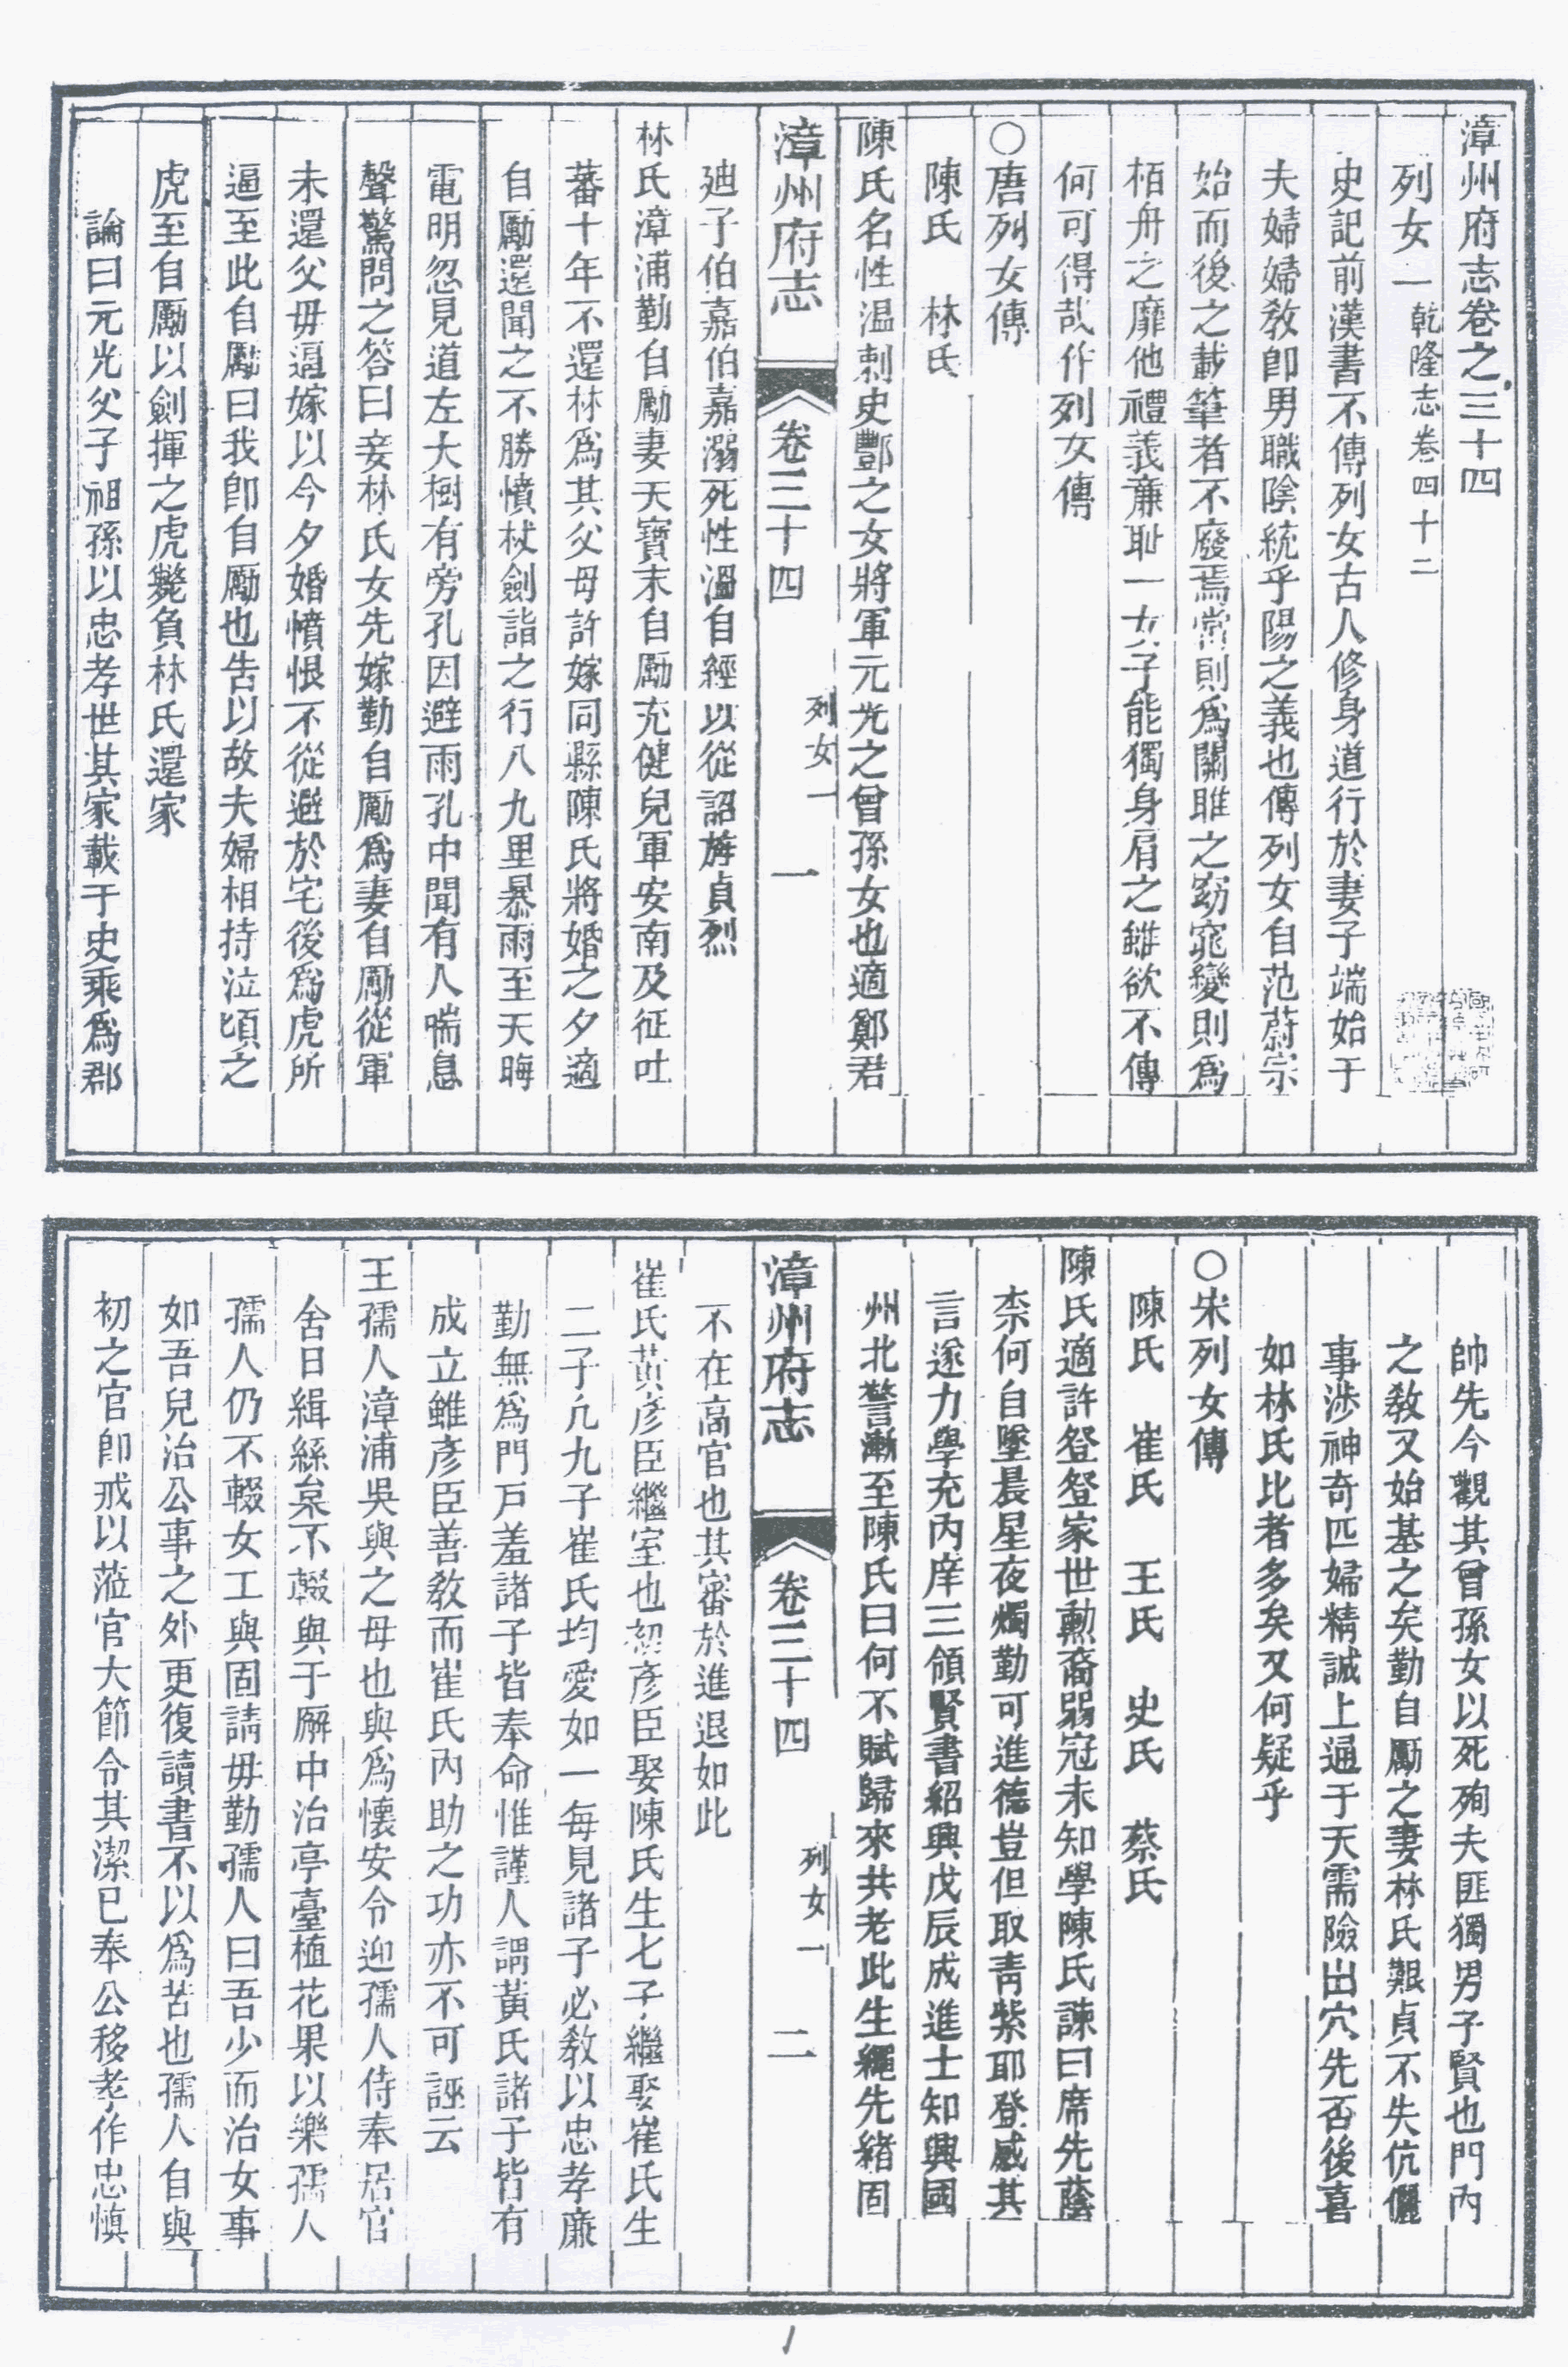 漳州府志卷之三十四
列女一乾隆志卷四十二
史記前漢書不傳列女古人修身道行於妻子端始于
夫婦婦教卽男職陰統乎陽之義也傳列女自范蔚宗
始而後之載筆者不廢焉常則爲關雎之窈窕變則爲
栢舟之靡他禮義亷耻一女子能獨身肩之雖欲不傳
何可得哉作列女傳
○唐列女傳
陳氏　林氏
陳氏名性温刺史酆之女將軍元光之曾孫女也適鄭君
漳州府志　卷三十四　列女一　一
廸子伯嘉伯嘉溺死性溫自經以從詔旌貞烈
林氏漳浦勤自勵妻天寶末自勵充健兒軍安南及征吐
蕃十年不還林爲其父母許嫁同縣陳氏將婚之夕適
自勵還聞之不勝憤杖劍詣之行八九里暴雨至天晦
電明忽見道左大樹有旁孔因避雨孔中聞有人喘息
聲驚問之答曰妾林氏女先嫁勤自勵爲妻自勵從軍
未還父毋逼嫁以今夕婚憤恨不從避於宅後爲虎所
逼至此自勵曰我卽自勵也告以故夫婦相持泣頃之
虎至自勵以劍揮之虎斃負林氏還家
論曰元光父子祖孫以忠孝世其家載于史乘爲郡
帥先今觀其曾孫女以死殉夫匪獨男子賢也門內
之教又始基之矣勤自勵之妻林氏艱貞不失伉儷
事渉神奇匹婦精誠上通于天需險出穴先否後喜
如林氏比者多矣又何疑乎
○宋列女傳
陳氏　崔氏　王氏　史氏　蔡氏
陳氏適許登登家世勲裔弱冠未知學陳氏諫曰席先蔭
柰何自墜晨星夜燭勤可進德豈但取青紫耶登感其
言遂力學充內庠三領賢書紹興戊辰成進士知興國
州北警漸至陳氏曰何不賦歸來共老此生繩先緒固
漳州府志　卷三十四　列女一　二
不在高官也其審於進退如此
崔氏黃彦臣繼室也初彦臣娶陳氏生七子繼娶崔氏生
二子凢九子崔氏均愛如一每見諸子必教以忠孝廉
勤無爲門戸羞諸子皆奉命惟謹人謂黃氏諸子皆有
成立雖彥臣善敎而崔氏內助之功亦不可誣云
王孺人漳浦吳與之母也與爲懷安令迎孺人侍奉居官
舍日緝絲枲不輟與于廨中治亭臺植花果以樂孺人
孺人仍不輟女工與固請毋勤孺人曰吾少而治女事
如吾兒治公事之外更復讀書不以爲苦也孺人自與
初之官卽戒以蒞官大節令其潔已奉公移孝作忠愼